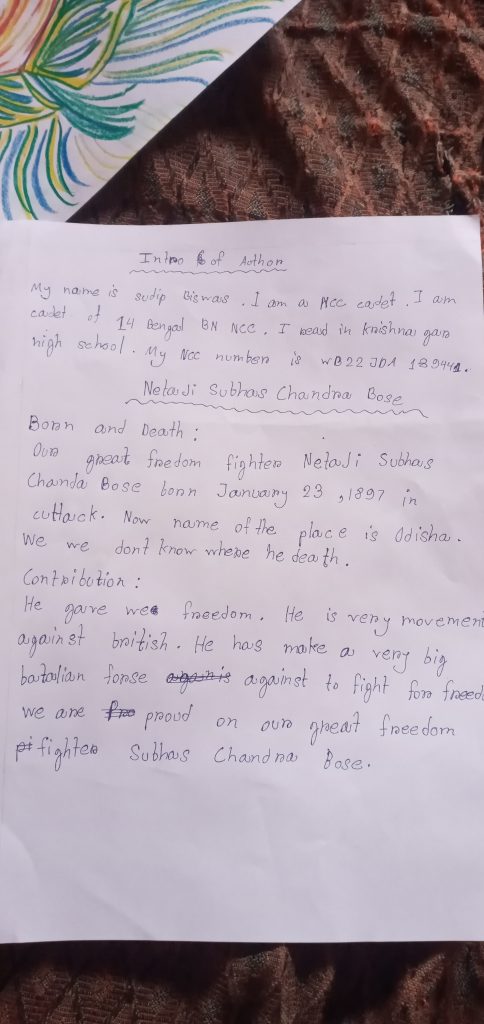 Intro of Author
My name is sudip Biswas. I am a NCC cadet. I am
cadet of 14 Bengal BN NCC. I read in krishna gar
high school. My NCC number is WB22JDA 189441.
NetaJi Subhas Chandra Bose
Born and Death :
Our great fredom fighter NetaJi Subhas
Chanda Bose born January 23 ,1897 in
cuttack. Now name of the place is Odisha.
We we dont know where he death.
Contribution :
He gave we freedom. He is very movemen
against british. He has make a very big
batalian forse against to fight for freed
we are proud on our great freedom
fighter Subhas Chandra Bose.